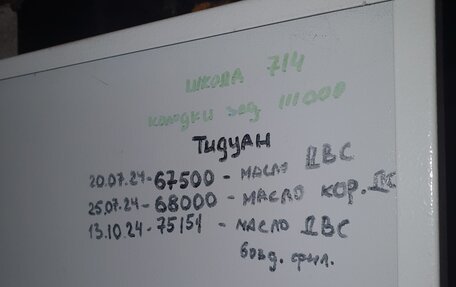 ШКОДА 714
КОЛОДКИ ЗАД 111000
ТИГУАН
20.07.24-67500 - МАСЛО ДВС
25.07.24-68000 - МАСЛО КОР. ДС
13.10.24-75151 - МАСЛО ДВС
возд. фил.